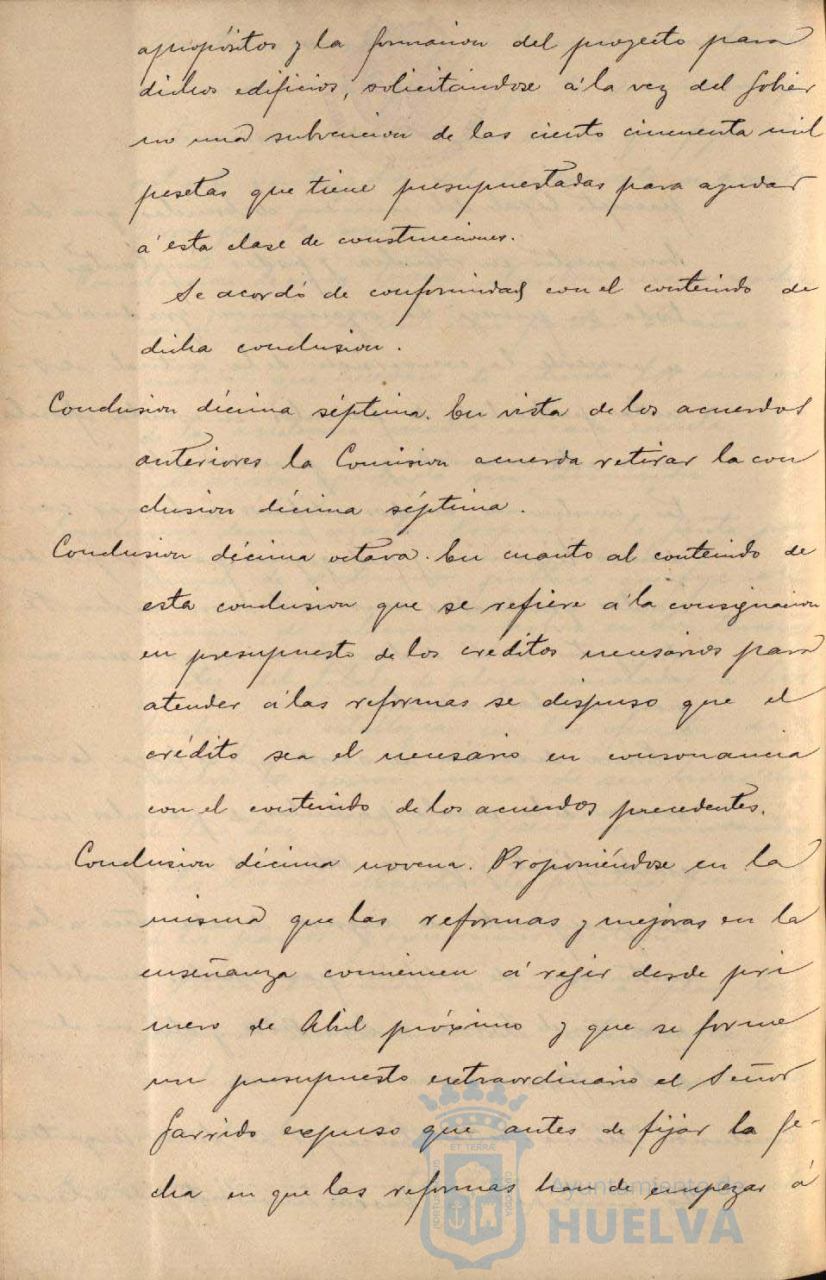 apropósitos y la formacion del proyecto para
dichos edificios, solicitándose á la vez del Gobier
no una subvencion de las ciento cincuenta mil
pesetas que tiene presupuestadas para ayudar
á esta clase de construcciones.
Se acordó de conformidad con el contenido de
dicha conclusion.
Conclusion décima séptima. En vista de los acuerdos
anteriores la Comision acuerda retirar la con
clusion décima séptima.
Conclusion décima octava. En cuanto al contenido de
esta conclusion que se refiere á la consignacion
en presupuesto de los créditos necesarios para
atender á las reformas se dispuso que el
crédito sea el necesario en consonancia
con el contenido de los acuerdos precedentes.
Conclusion décima novena. Proponiéndose en la
misma que las reformas y mejoras en la
enseñanza comiencen á regir desde pri
mero de Abril próximo y que se forme
un presupuesto extraordinario el Señor
Garrido expuso que antes de fijar la fe-
cha en que las reformas han de empezar á
ET TERRÆ
PORTUS
CUSTODIA
Ayuntamiento de
HUELVA